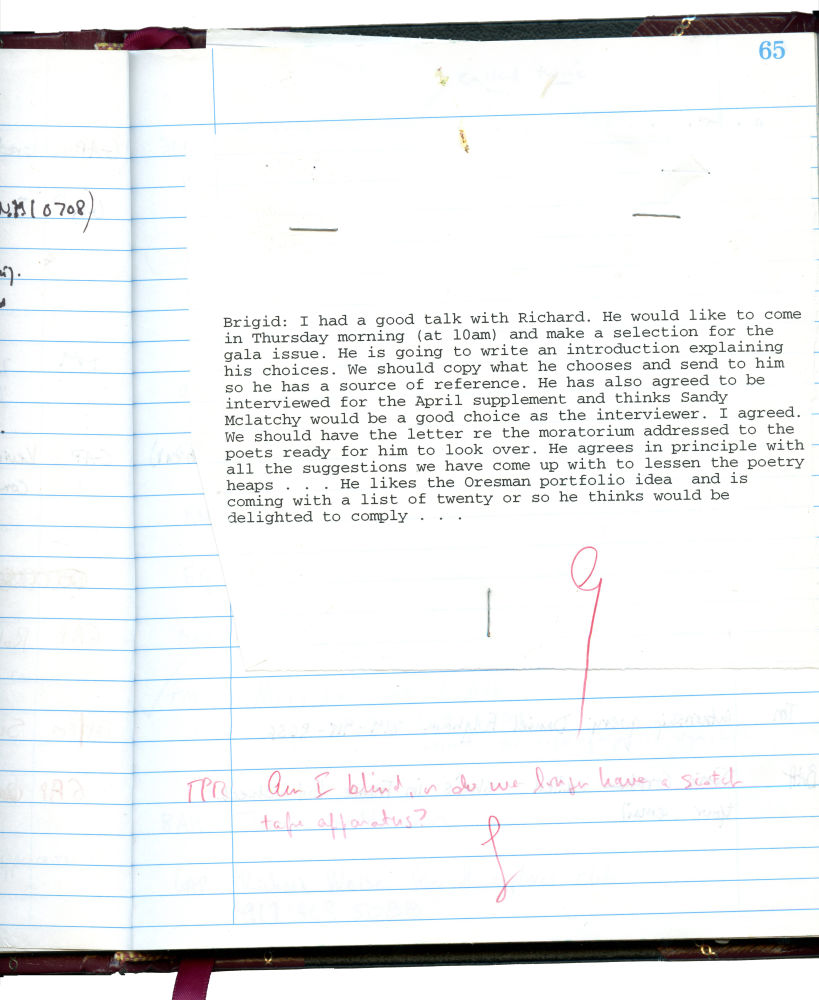 65
0708)
Brigid: I had a good talk with Richard. He would like to come
in Thursday morning (at 10am) and make a selection for the
gala issue. He is going to write an introduction explaining
his choices. We should copy what he chooses and send to him
so he has a source of reference. He has also agreed to be
interviewed for the April supplement and thinks Sandy
Mclatchy would be a good choice as the interviewer. I agreed.
We should have the letter re the moratorium addressed to the
poets ready for him to look over. He agrees in principle with
all the suggestions we have come up with to lessen the poetry
heaps . . . He likes the Oresman portfolio idea and is
coming with a list of twenty or so he thinks would be
delighted to comply . . .
TPR Am I blind, or do we longer have a scotch
tape apparatus?